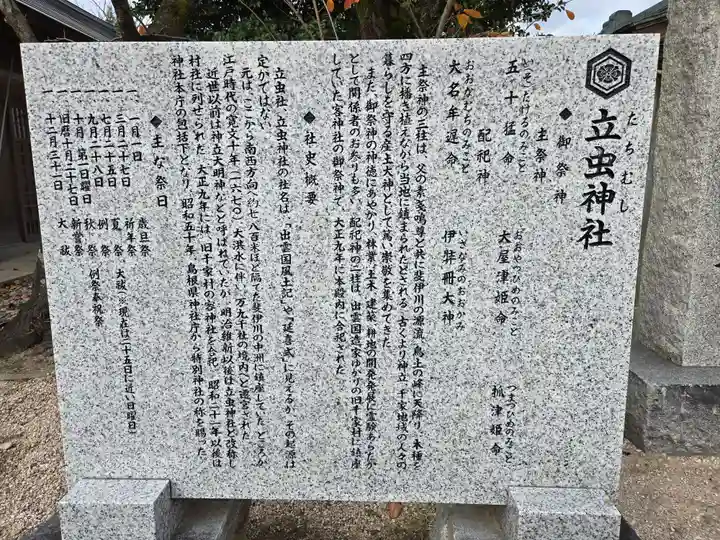 たちむし
立虫神社
◆御祭神
主祭神
いそたけるのみこと
五十猛命
おおやつひめのみこと
大屋津姫命
つまつひめのみこと
抓津姫命
配祀神
おおなむちのみこと
大名牟遅命
いざなみのおおかみ
伊弉冊大神
主祭神の三柱は、父の素戔嗚尊と共に斐伊川の源流、鳥上の峰に天降り、木種を
四方に播き植えながら当地に鎮まられたとされる。古くより神立、千家地域の人々の
暮らしを守る産土大神として篤い崇敬を集めてきた。
また、御祭神の神徳にあやかり、林業、土木、建築、耕地の開発発展に霊験あらたか
として関係者のお参りも多い。配祀神の二柱は、出雲国造家ゆかりの旧千家村に鎮座
していた客神社の御祭神で、大正九年に本殿内に合祀された。
◆社史概要
立虫社、立虫神社の社名は、「出雲国風土記」や『延喜式』に見えるが、その起源は
定かではない。
元は、ここから南西方向へ約七八百米ほど隔てた斐伊川の中洲に鎮座していた。ところが
江戸時代の寛文十年（一六七〇）、大洪水に伴い万九千社の境内へと遷宮された。
近世以前は神立大明神などと呼ばれていたが、明治維新以後は立虫神社と改称し
村社に列せられた。大正九年には、旧千家村の客神社を合祀。昭和二十一年以後は
神社本庁の包括下となり、昭和五十年、島根県神社庁から特別神社の称を賜った。
◆主な祭日
一、一月一日　歳旦祭
一、三月二十七日　祈年祭
一、七月二十五日　夏祭　大祓（※現在は二十五日に近い日曜日）
一、九月二十八日　例祭
一、十月第二日曜日　秋祭　例祭奉祝祭
一、旧暦十月二十七日　新嘗祭
一、十二月三十一日　大祓